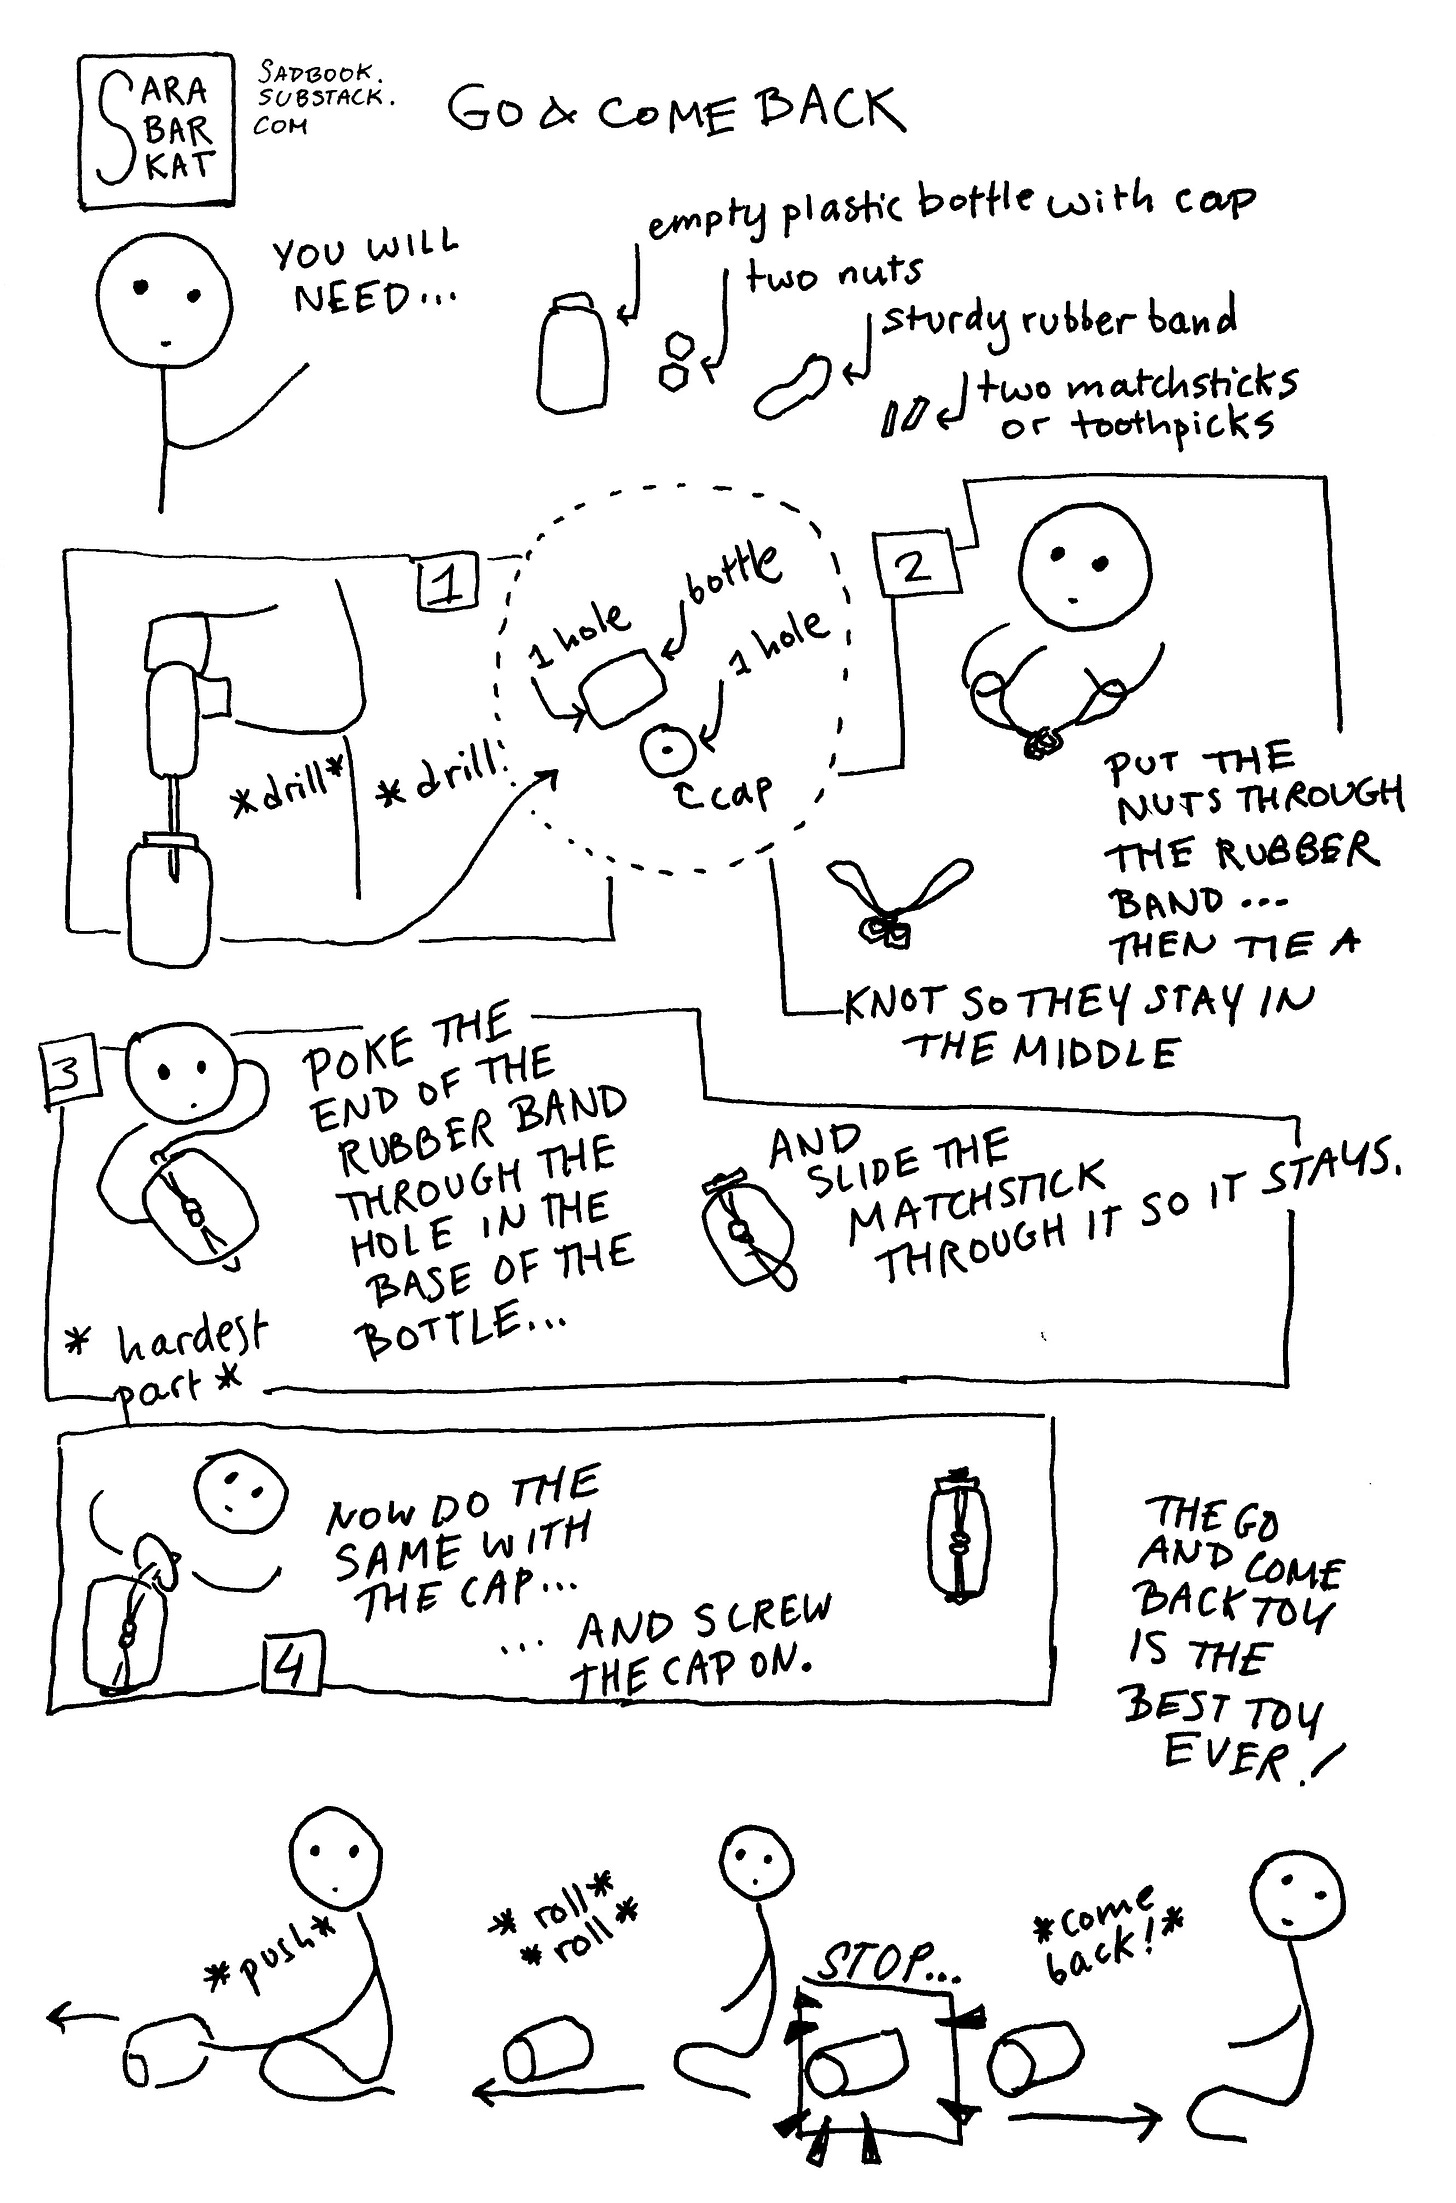 SARA
BAR
KAT
SADBOOK.
SUBSTACK.
COM
GO & COME BACK
YOU WILL
NEED...
empty plastic bottle with cap
two nuts
sturdy rubber band
two matchsticks
or toothpicks
1
*drill*
*drill*
1 hole
bottle
1 hole
cap
2
PUT THE
NUTS THROUGH
THE RUBBER
BAND...
THEN TIE A
KNOT SO THEY STAY IN
THE MIDDLE
3
POKE THE
END OF THE
RUBBER BAND
THROUGH THE
HOLE IN THE
BASE OF THE
BOTTLE...
* hardest
part *
AND
SLIDE THE
MATCHSTICK
THROUGH IT SO IT STAYS.
NOW DO THE
SAME WITH
THE CAP...
... AND SCREW
THE CAP ON.
4
THE GO
AND COME
BACK TOY
IS THE
BEST TOY
EVER!
*push*
*roll*
*roll*
STOP...
*come
back!*